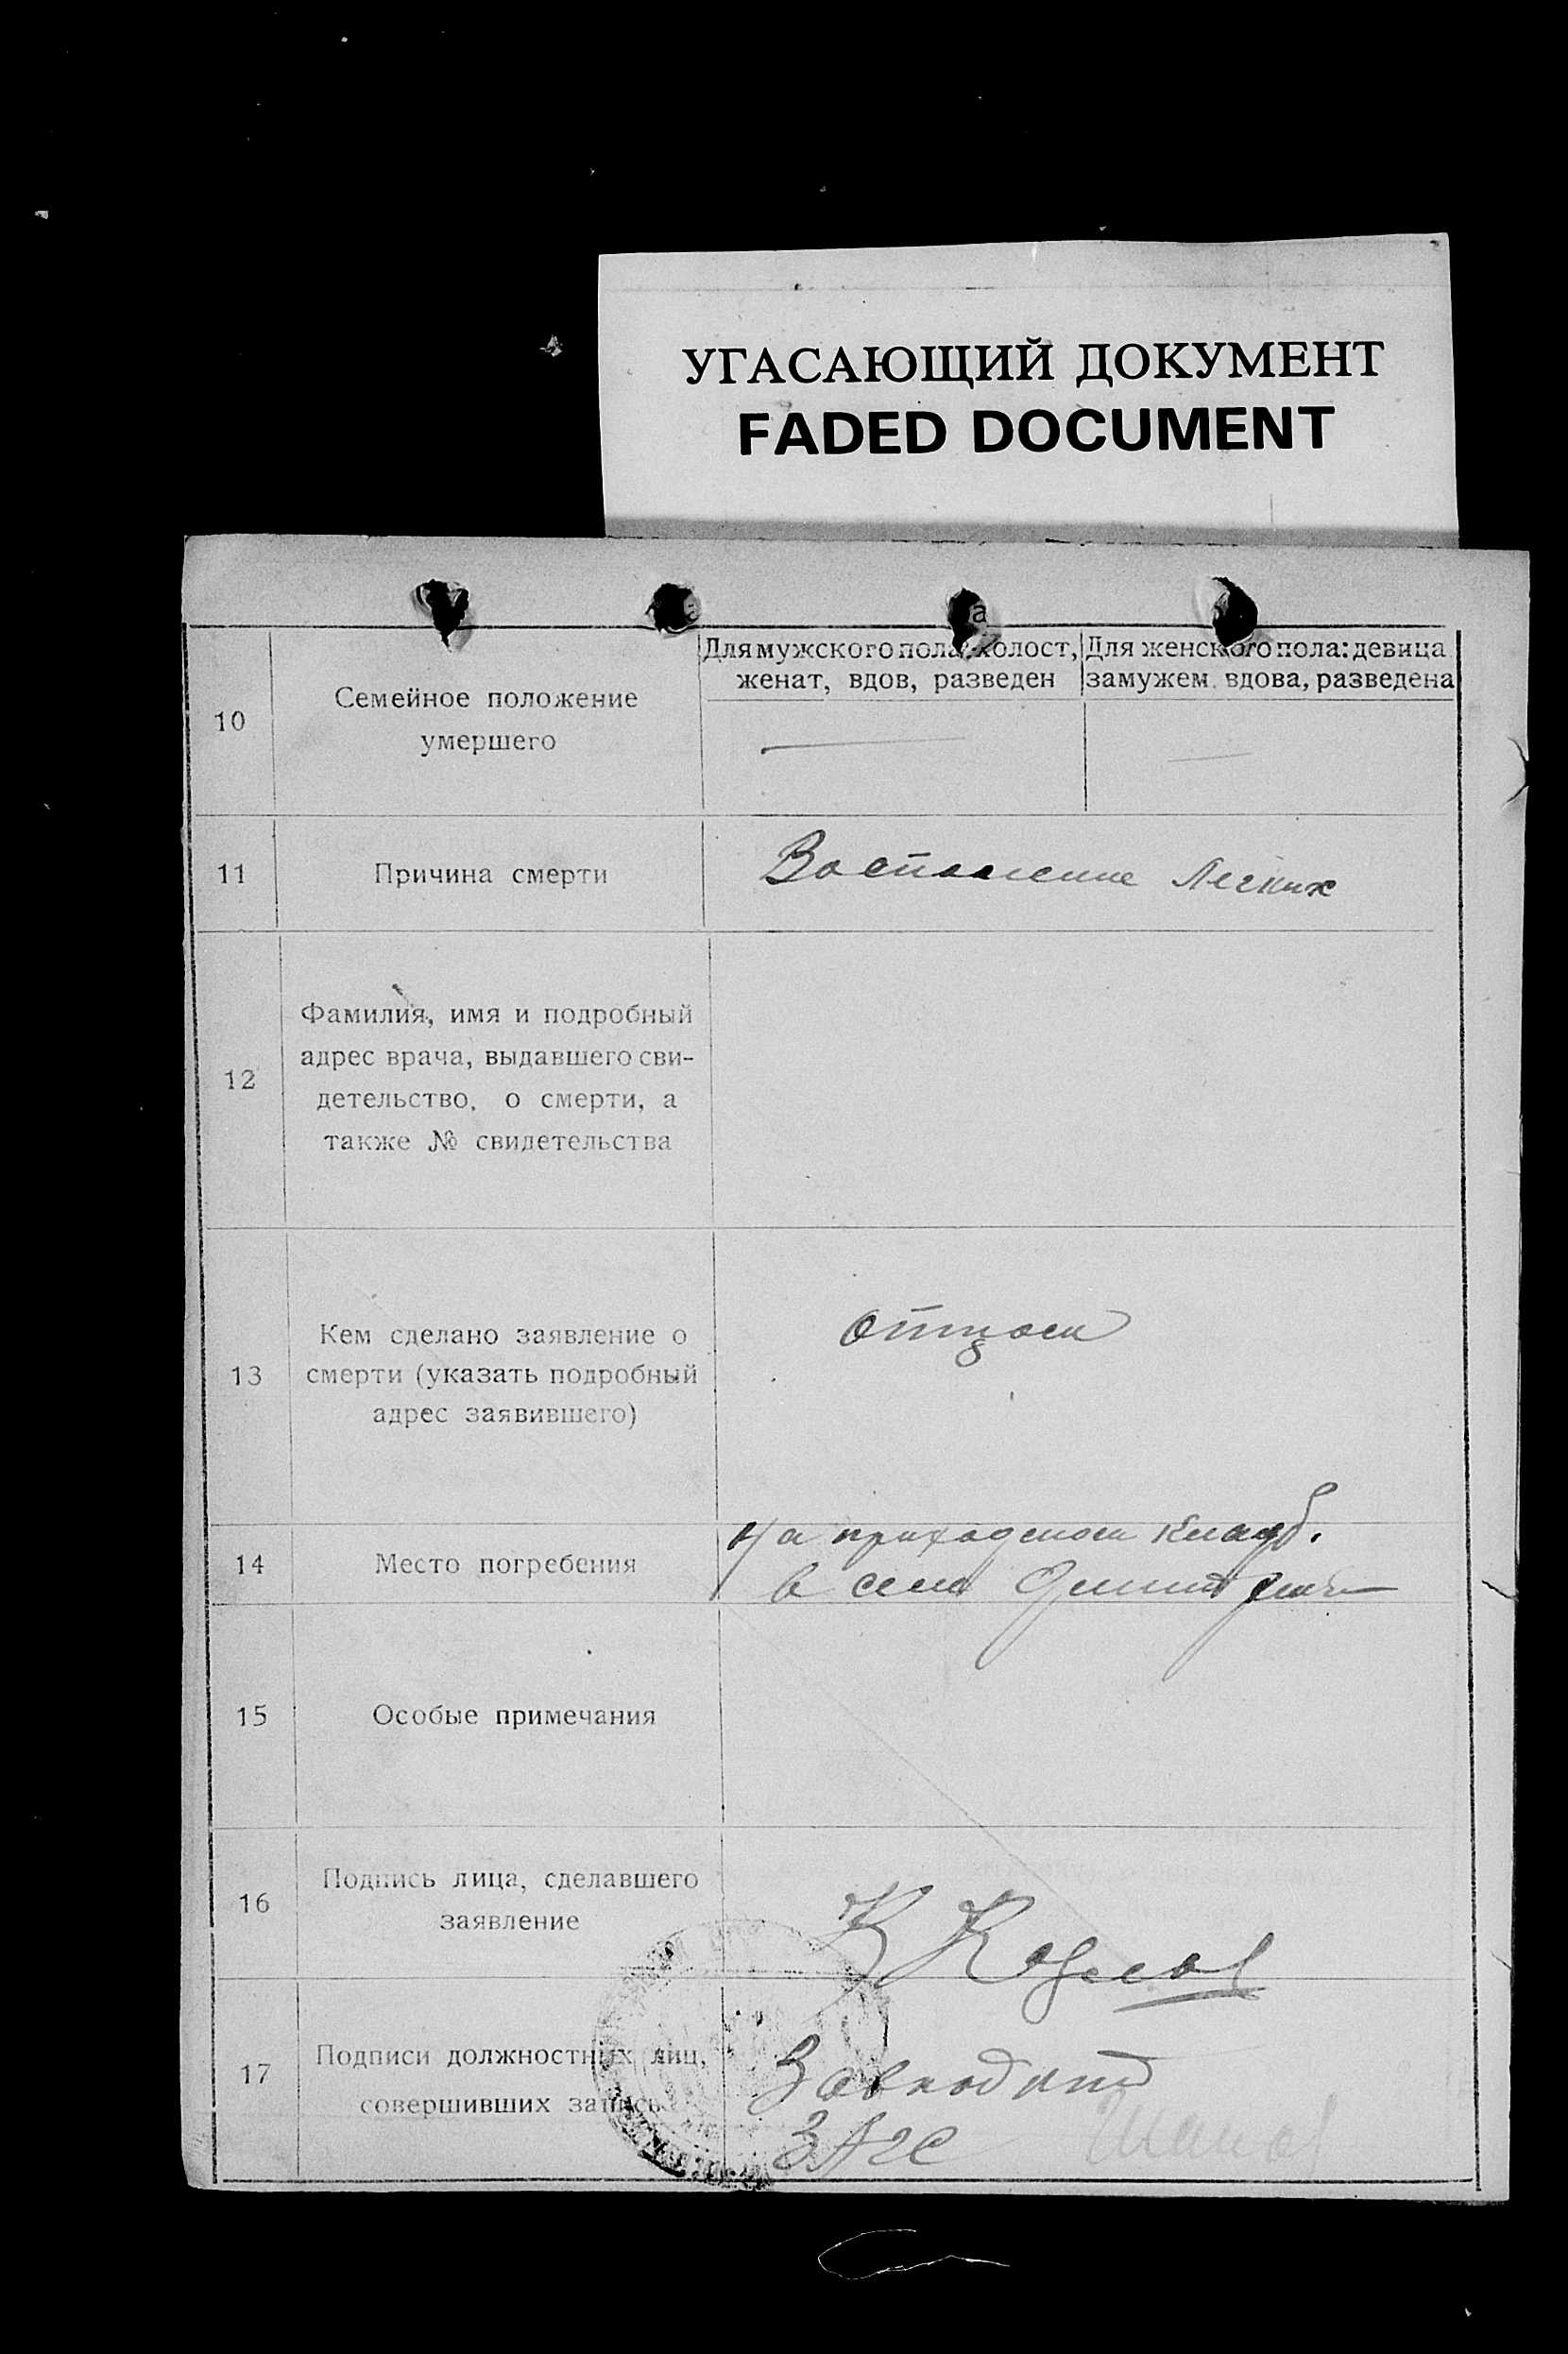 УГАСАЮЩИЙ ДОКУМЕНТ
FADED DOCUMENT
10
Семейное положение
умершего
Для мужского пола: холост,
женат, вдов, разведен
Для женского пола: девица
замужем вдова, разведена
11
Причина смерти
Воспаление Легких
12
Фамилия, имя и подробный
адрес врача, выдавшего сви-
детельство, о смерти, а
также № свидетельства
13
Кем сделано заявление о
смерти (указать подробный
адрес заявившего)
отцом
14
Место погребения
На приходском кладб.
в селе
15
Особые примечания
16
Подпись лица, сделавшего
заявление
К
17
Подписи должностных лиц,
совершивших запись
ЗАГС